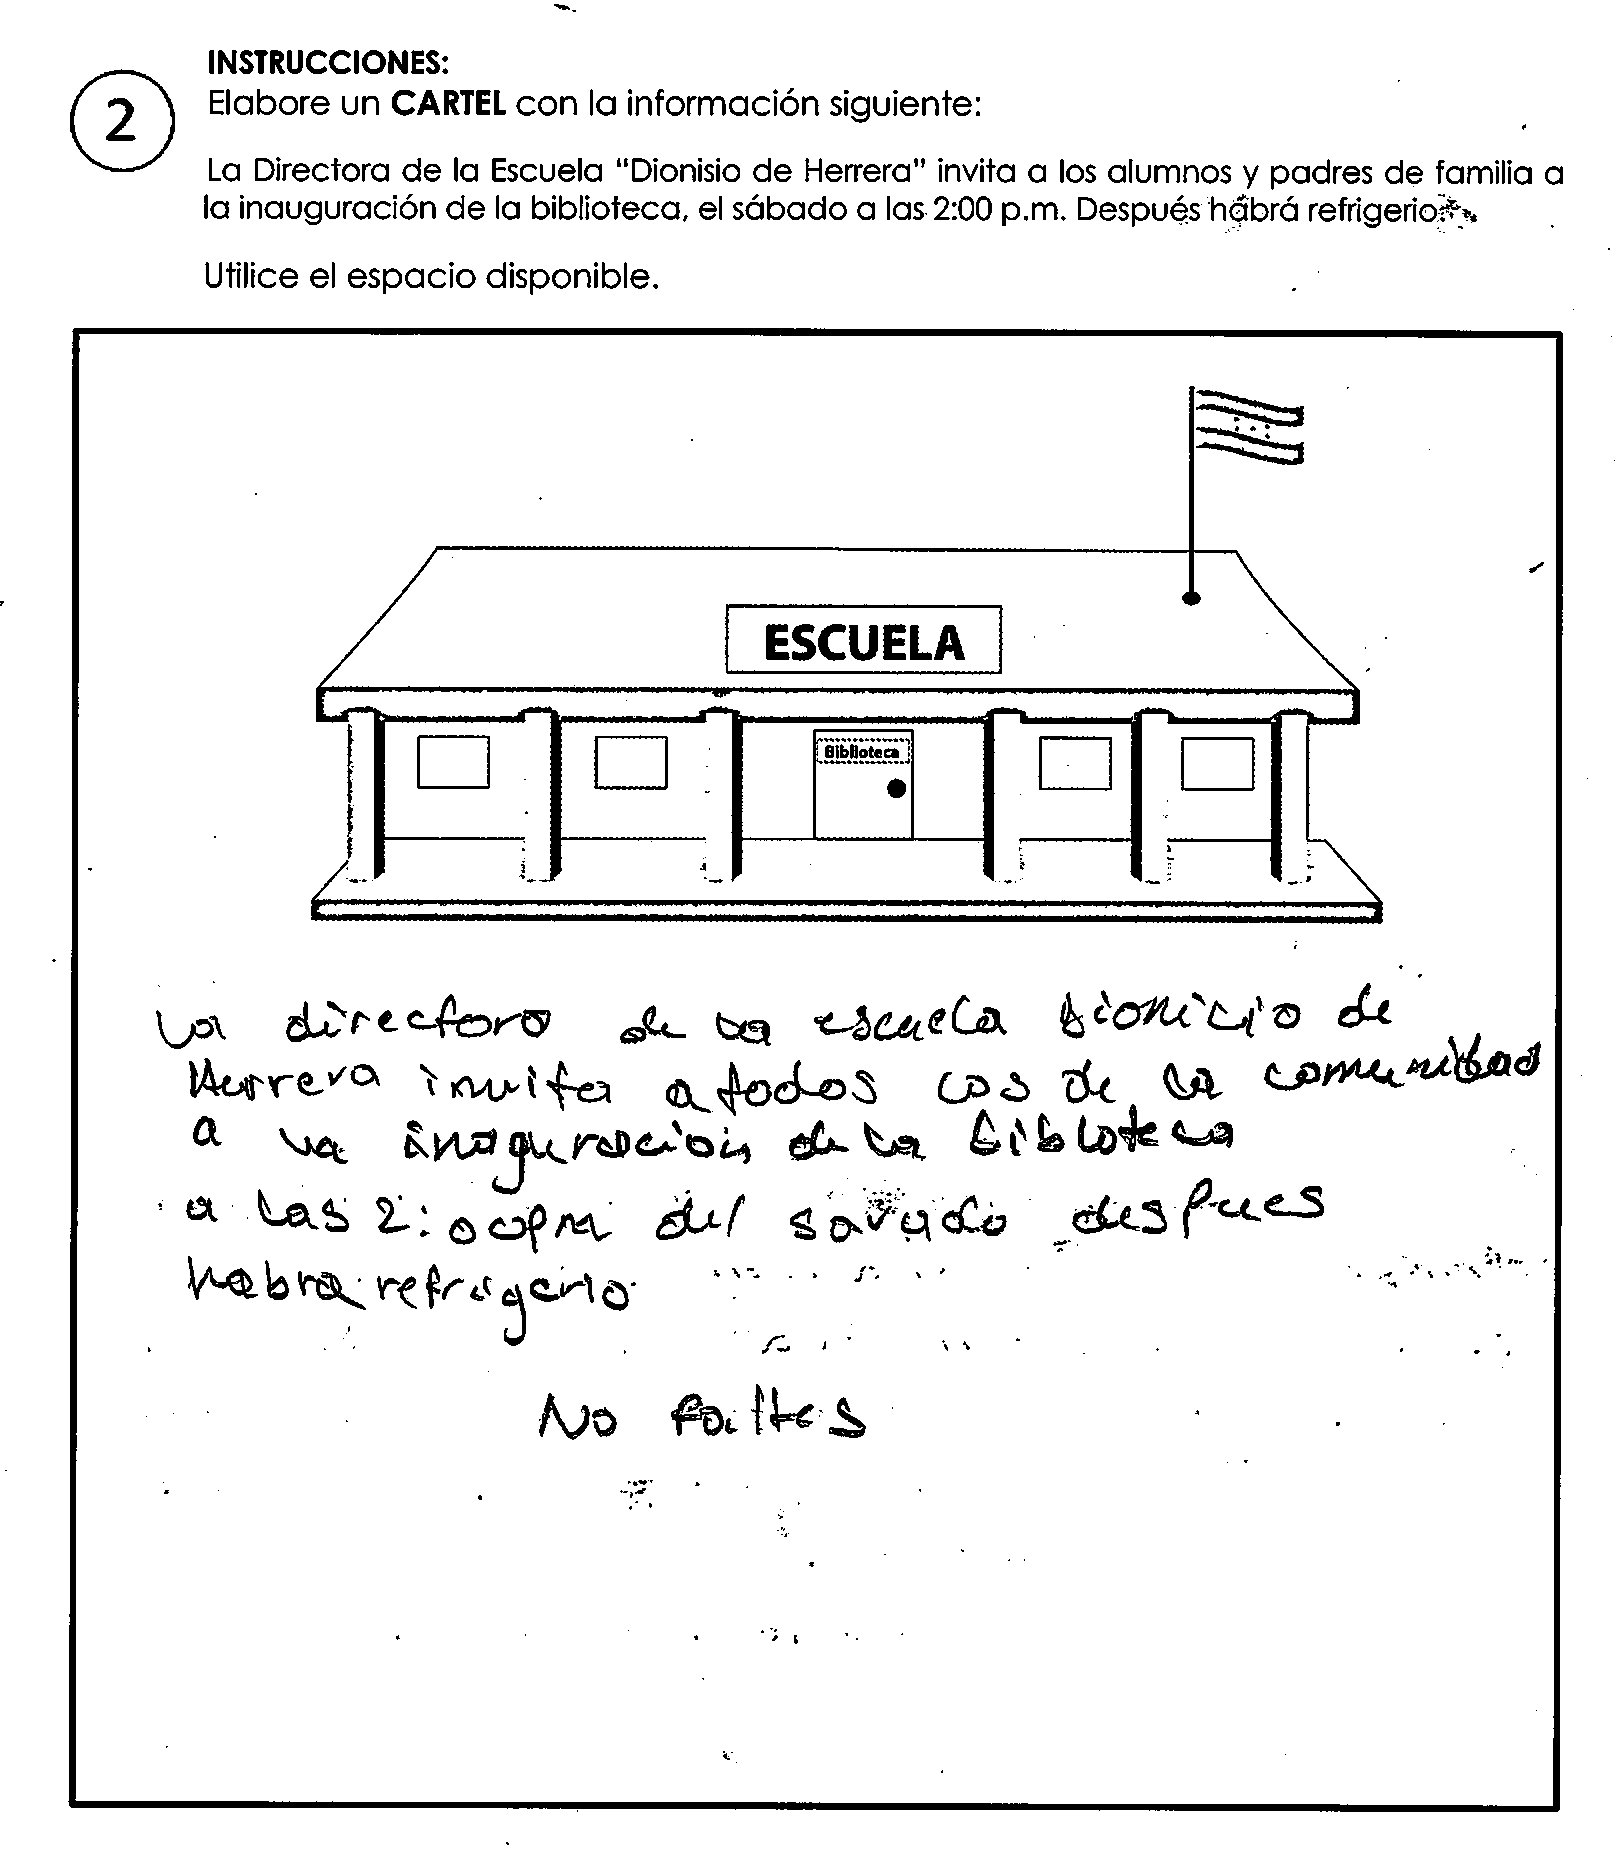 INSTRUCCIONES:
2
Elabore un CARTEL con la información siguiente:
La Directora de la Escuela "Dionisio de Herrera" invita a los alumnos y padres de familia a
la inauguración de la biblioteca, el sábado a las 2:00 p.m. Después habrá refrigerio.
Utilice el espacio disponible.
ESCUELA
Biblioteca
La directora de la escuela Dionicio de
Herrera invita a todos los de la comunidad
a la inaguración de la bibloteca
a las 2:00pm del savado despues
habra refrigerio
No faltes